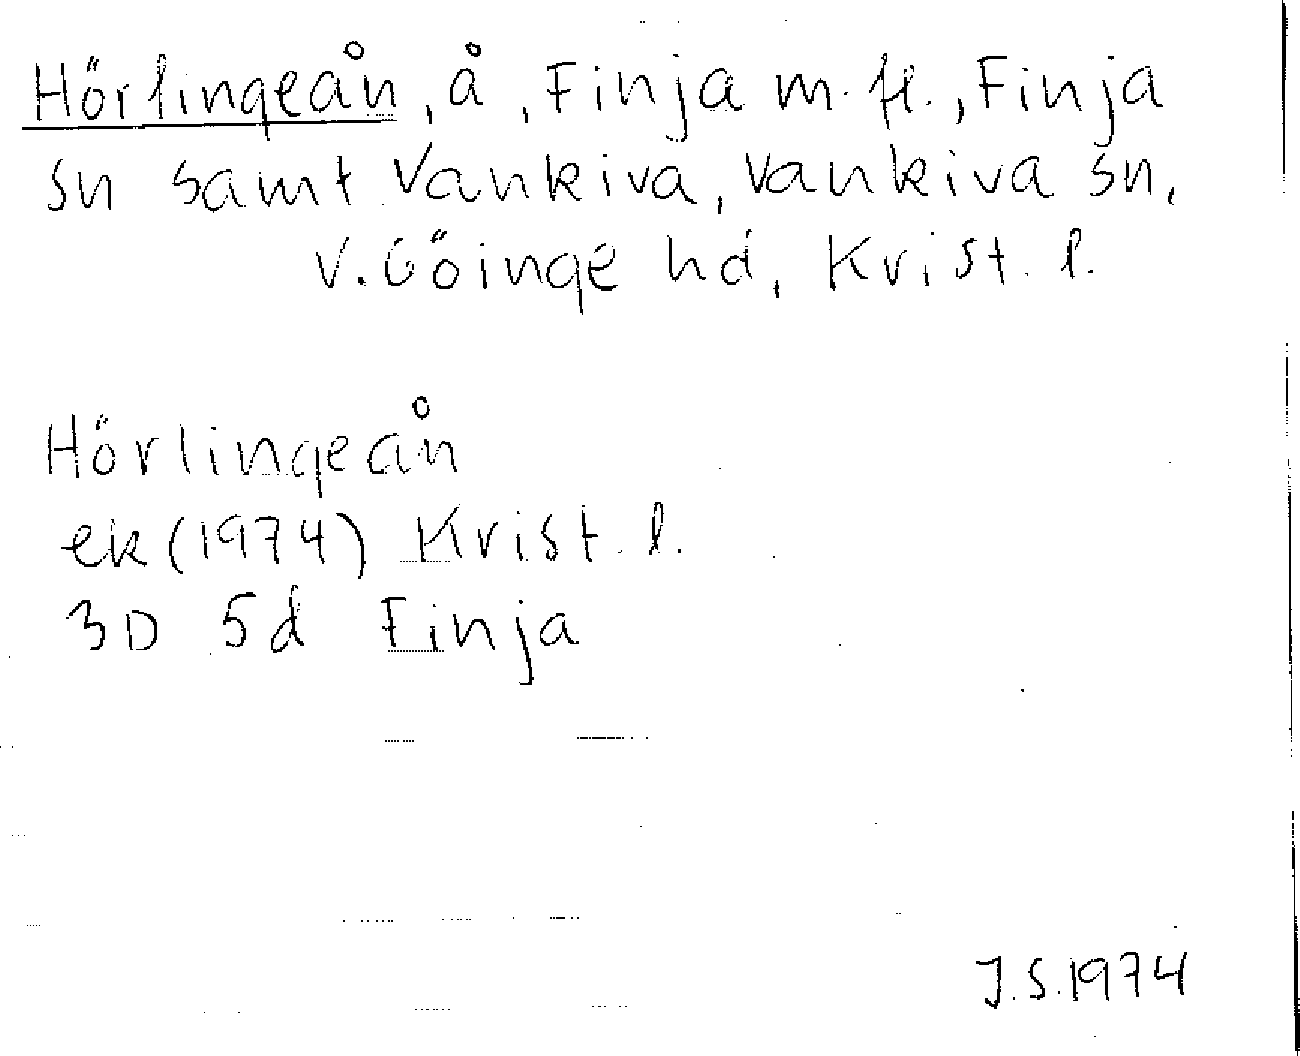 Hörlingeån, å, Finja m. fl., Finja
sn samt Vankiva, Vankiva sn,
V. Göinge hd, Krist. l.
Hörlingeån
ek (1974) Krist. l.
3D 5d Finja
J.S. 1974